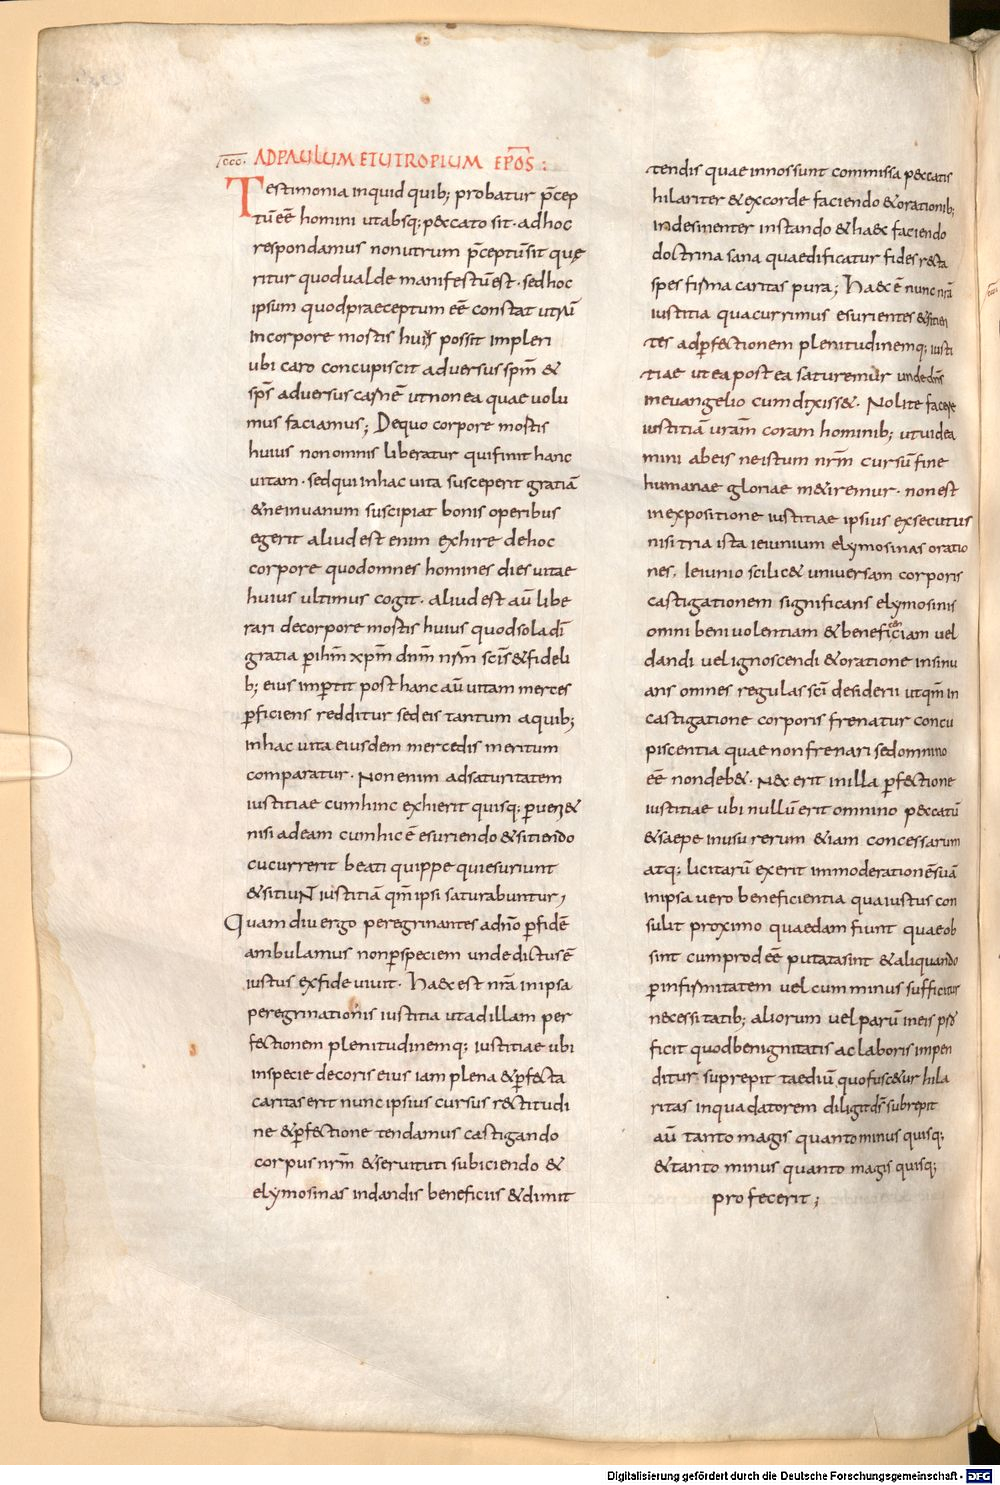 cccc. AD PAULUM ET UTROPIUM EPO̅S :
Testimonia inquid quib; probatur p̅cep
tu̅ ee̅ homini ut absq; peccato sit · ad hoc
respondamus non utrum p̅ceptu̅ sit quę
ritur quod ualde manifestu̅ est · sed hoc
ipsum quod praeceptum ee̅ constat utru̅
in corpore mortis huius possit impleri
ubi caro concupiscit aduersus sp̅m &
sp̅s aduersus carne̅ ut non ea quae uolu
mus faciamus; De quo corpore mortis
huius non omnis liberatur qui finit hanc
uitam · sed qui in hac uita susceperit gratia̅
& ne in uanum suscipiat bonis operibus
egerit aliud est enim exhire de hoc
corpore quod omnes homines dies uitae
huius ultimus cogit · aliud est au̅ libe
rari de corpore mortis huius quod sola di̅
gratia p̲ ihm̅ xpm̅ dnm̅ nr̅m sc̅is & fideli
b; eius imp̲tit post hanc au̅ uitam merces
p̲ficiens redditur sed eis tantum a quib;
in hac uita eiusdem mercedis meritum
comparatur · Non enim ad saturitatem
iustitiae cum hinc exhierit quisq; p̲uen&
nisi ad eam cum hic e̅ esuriendo & sitiendo
cucurrerit beati quippe qui esuriunt
& sitiunt iustitia̅ qm̅ ipsi saturabuntur;
Quamdiu ergo peregrinantes a dn̅o p̲ fide̅
ambulamus non p̲ speciem unde dictus e̅
iustus ex fide uiuit · Haec est nr̅a in ipsa
peregrinationis iustitia ut ad illam per
fectionem plenitudinemq; iustitiae ubi
in specie decoris eius iam plena & p̲fecta
caritas erit nunc ipsius cursus rectitudi
ne & p̲fectione tendamus castigando
corpus nr̅m & seruituti subiciendo &
elymosinas in dandis beneficiis & dimit
tendis quae in nos sunt commissa peccatis
hilariter & ex corde faciendo & orationib;
indesinenter instando & haec faciendo
doctrina sana qua edificatur fides recta
spes firma caritas pura; Haec e̅ nunc nr̅a
iustitia qua currimus esurientes & sitien
tes ad p̲fectionem plenitudinemq; iusti
tiae ut ea postea saturemur unde dn̅s
in euangelio cum dixiss& · Nolite facere
iustitia̅ ur̅am coram hominib; ut uidea
mini ab eis ne istum nr̅m cursu̅ fine
humanae gloriae m&iremur · non est
in expositione iustitiae ipsius exsecutus
nisi tria ista ieiunium elymosinas oratio
nes. Ieiunio scilic& uniuersam corporis
castigationem significans elymosinis
omni beniuolentiam & beneficiam uel
dandi uel ignoscendi & oratione insinu
ans omnes regulas sc̅i desiderii ut qm̅ in
castigatione corporis frenatur concu
piscentia quae non frenari sed omnino
ee̅ non deb& · Nec erit in illa p̲fectione
iustitiae ubi nullu̅ erit omnino peccatu̅
& saepe in usu rerum etiam concessarum
atq; licitaru̅ exerit immoderatione̅ sua̅
in ipsa uero beneficientia qua iustus con
sulit proximo quaedam fiunt quae ob
sint cum prodee̅ putata sint & aliquando
p̲ infirmitatem uel cum minus sufficitur
necessitatib; aliorum uel paru̅ in eis pro
ficit quod benignitatis ac laboris inpen
ditur suprepit taediu̅ quo fusc&ur hila
ritas in qua datorem diligit ds̅ subrepit
au̅ tanto magis quanto minus quisq;
& tanto minus quanto magis quisq;
profecerit;
Digitalisierung gefördert durch die Deutsche Forschungsgemeinschaft - DFG